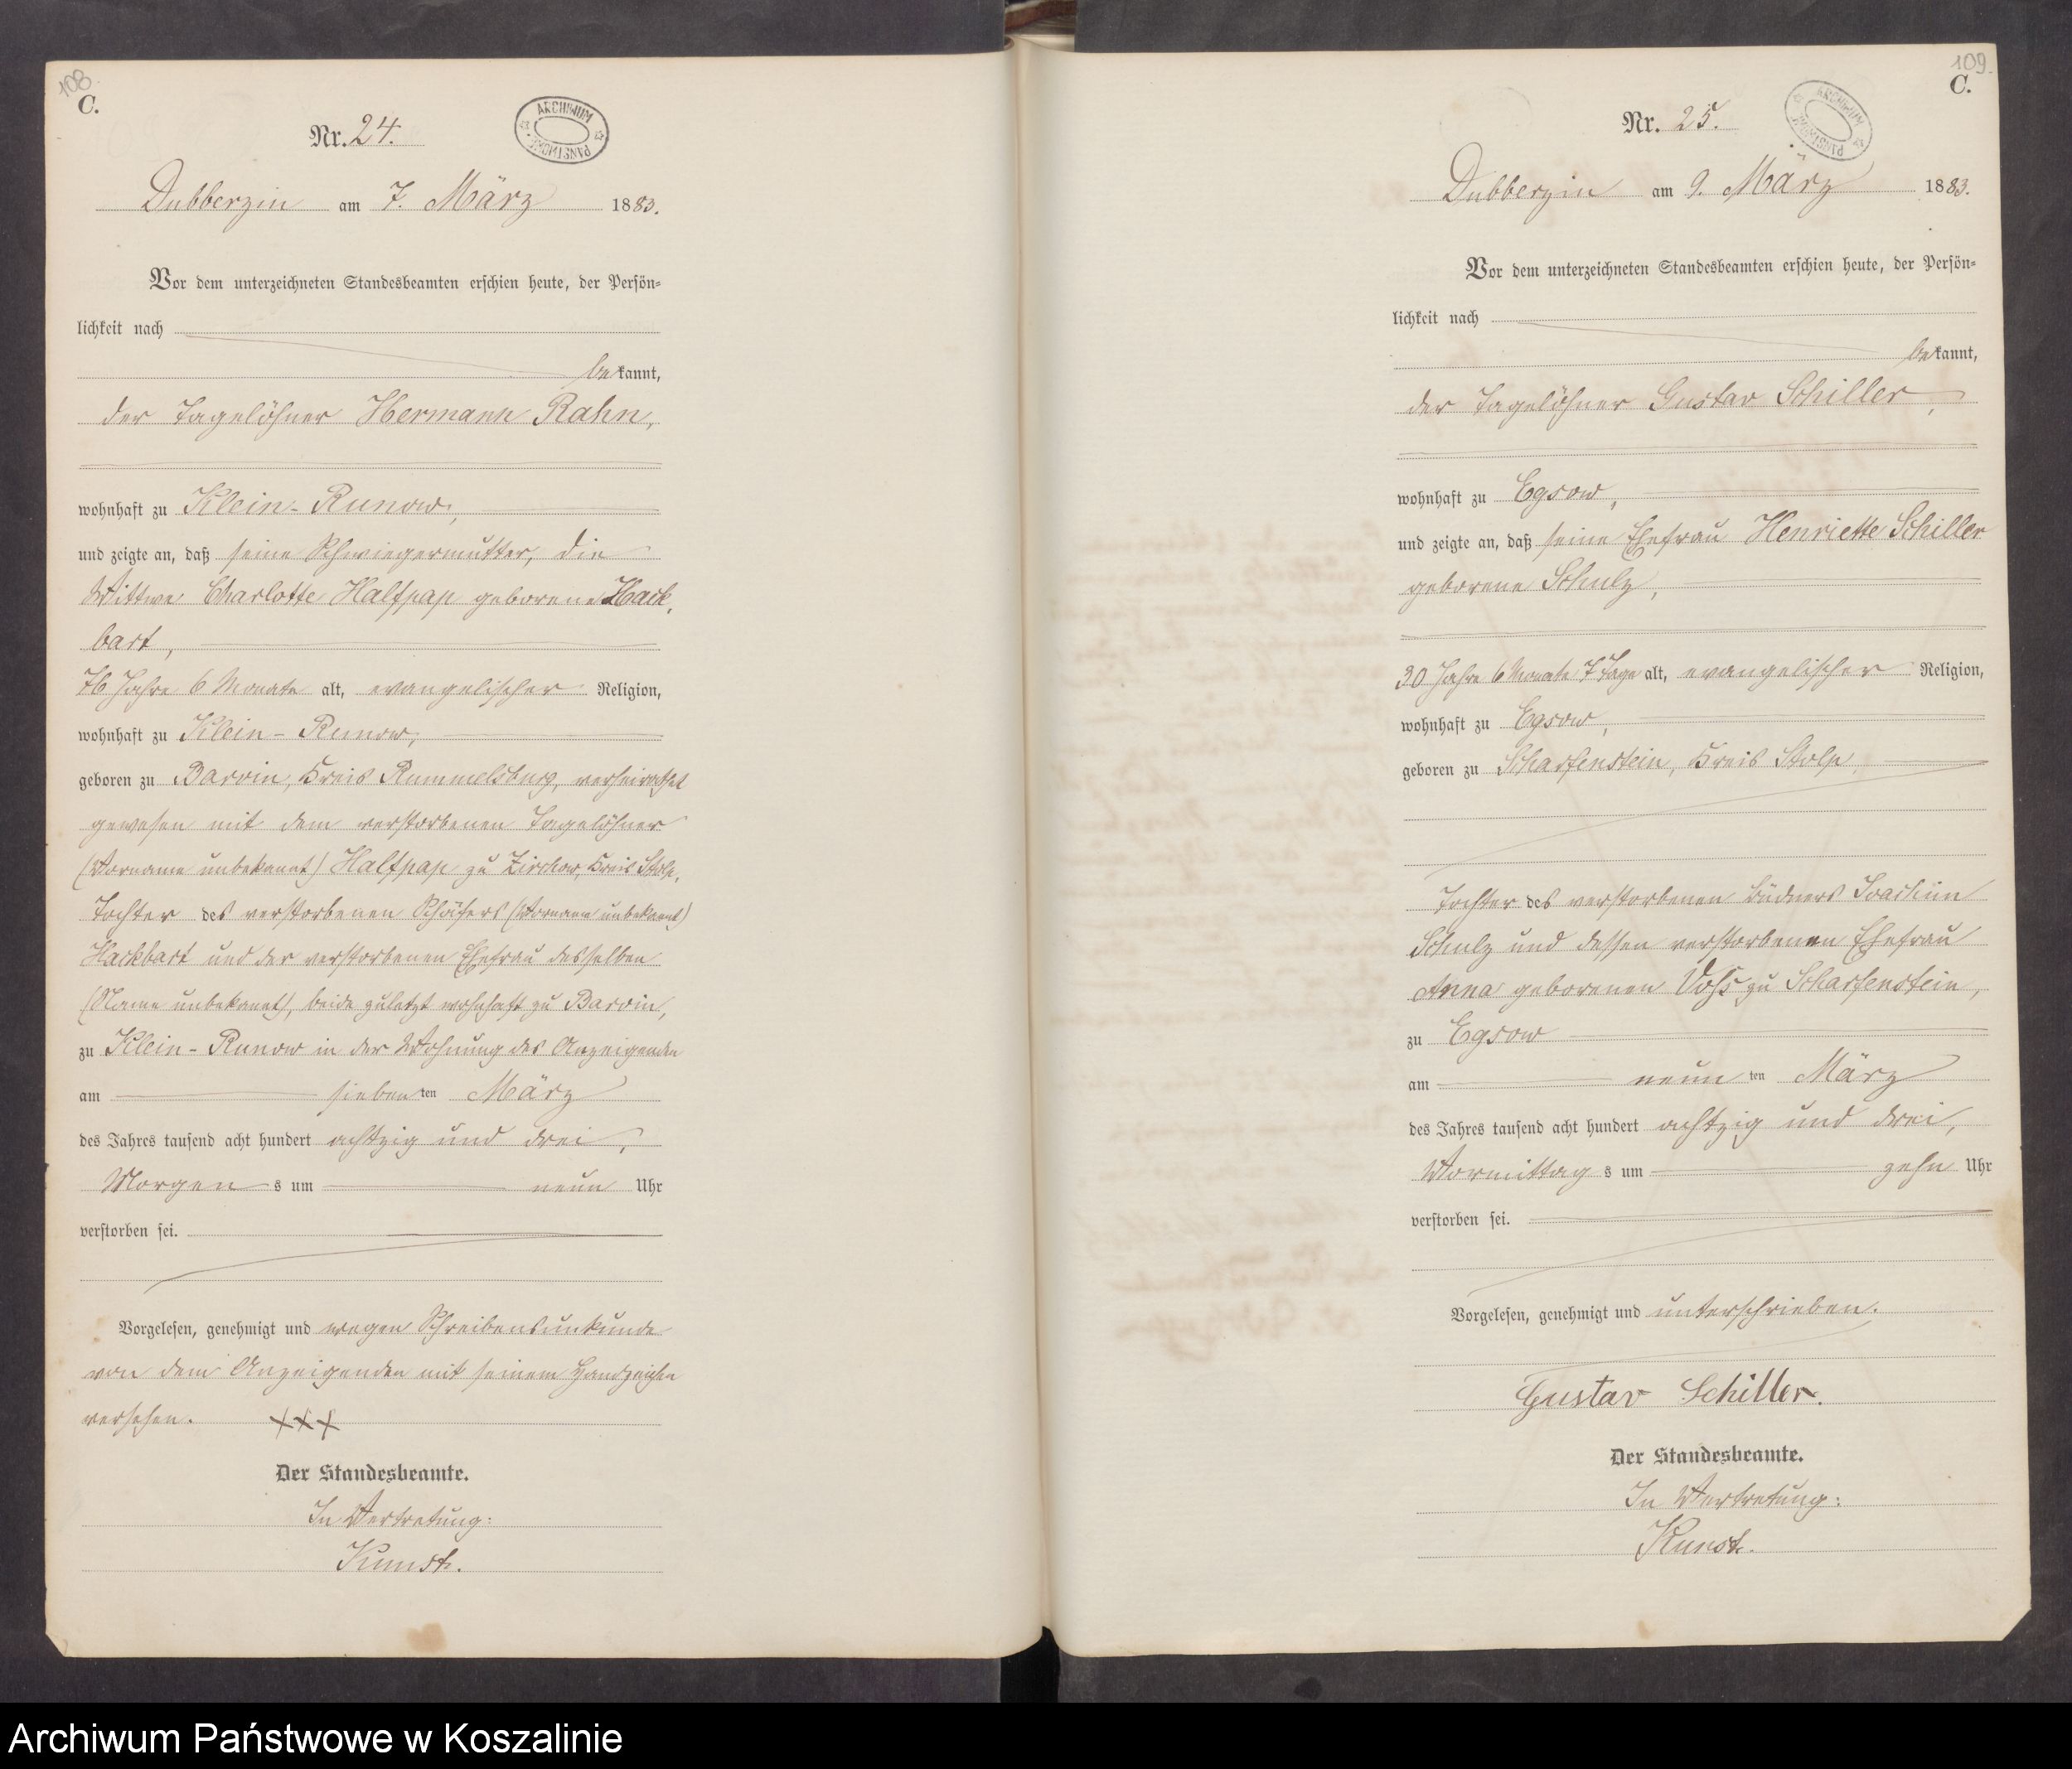 108.
C.
ARCHIWUM PAŃSTWOWE
Nr. 24.
Dubberzin am 7. März 1883.
Vor dem unterzeichneten Standesbeamten erschien heute, der Persön-
lichkeit nach
bekannt,
der Tagelöhner Hermann Rahn,
wohnhaft zu Klein-Runow,
und zeigte an, daß seine Schwiegermutter, die
Wittwe Charlotte Halfpap geborene Hack-
bart,
76 Jahre 6 Monate alt, evangelischer Religion,
wohnhaft zu Klein-Runow,
geboren zu Barvin, Kreis Rummelsburg, verheirathet
gewesen mit dem verstorbenen Tagelöhner
(Vorname unbekannt) Halfpap zu Zirchow, Kreis Stolp,
Tochter des verstorbenen Schäfers (Vorname unbekannt)
Hackbart und der verstorbenen Ehefrau desselben
(Name unbekannt), beide zuletzt wohnhaft zu Barvin,
zu Klein-Runow in der Wohnung des Anzeigenden
am siebenten März
des Jahres tausend acht hundert achtzig und drei,
Morgens um neun Uhr
verstorben sei.
Vorgelesen, genehmigt und wegen Schreibensunkunde
von dem Anzeigenden mit seinem Handzeichen
versehen. XXX
Der Standesbeamte.
In Vertretung:
Kunst.
109.
C.
ARCHIWUM PAŃSTWOWE
Nr. 25.
Dubberzin am 9. März 1883.
Vor dem unterzeichneten Standesbeamten erschien heute, der Persön-
lichkeit nach
bekannt,
der Tagelöhner Gustav Schiller,
wohnhaft zu Egsow,
und zeigte an, daß seine Ehefrau Henriette Schiller
geborene Schulz,
30 Jahre 6 Monate 7 Tage alt, evangelischer Religion,
wohnhaft zu Egsow,
geboren zu Scharfenstein, Kreis Stolp,
Tochter des verstorbenen Büdners Joachim
Schulz und dessen verstorbenen Ehefrau
Anna geborenen Voß zu Scharfenstein,
zu Egsow
am neunten März
des Jahres tausend acht hundert achtzig und drei,
Vormittags um zehn Uhr
verstorben sei.
Vorgelesen, genehmigt und unterschrieben.
Gustav Schiller.
Der Standesbeamte.
In Vertretung:
Kunst.
Archiwum Państwowe w Koszalinie